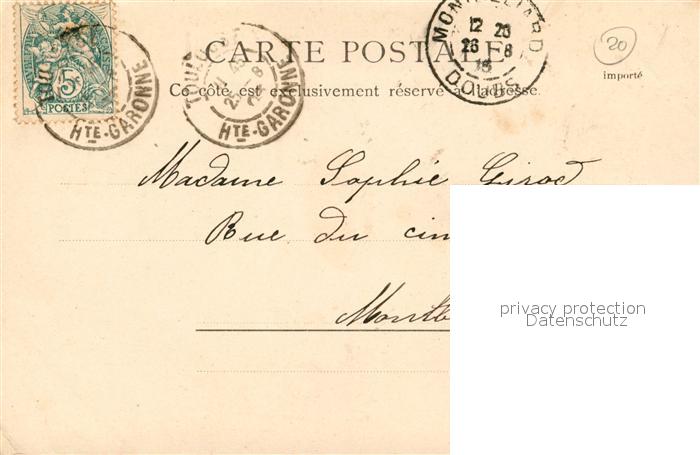 CARTE POSTALE
Ce côté est exclusivement réservé à l'adresse.
5c
POSTES
HTE-GARONNE
HTE-GARONNE
12 26
26 8
DOUBS
20
importé
Madame Sophie Girod
Rue du
privacy protection
Datenschutz